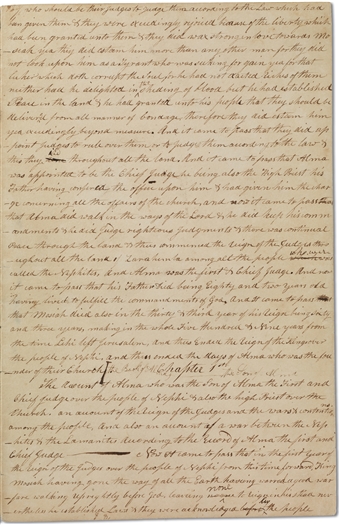 who should be their judges to judge them according to the Law which had
been given them & they were exceedingly rejoiced because of the liberty which
had been granted unto them & they did wax strong in love towards Mo
siah yea they did esteem him more than any other man for they did
not look upon him as a Tyrant who was seeking for gain yea for that
lucre which doth corrupt the Soul for he had not exacted riches of them
neither had he delighted in the Sheding of blood but he had established
Peace in the land & he had granted unto his people that they should be
delivered from all manner of bondage therefore they did esteem him
yea exceedingly beyond measure And it came to pass that they did ap
point judges to rule over them or to judge them according to the law &
this they throughout all the land. And it came to pass that Alma
was appointed to be the Chief Judge he being also the High Priest his
Father having confered the office upon him & had given him the char
ge concerning all the affairs of the church, and now it came to pass
that Alma did walk in the ways of the Lord & he did keep his com
mandments & he did judge righteous Judgments & there was continual
Peace through the land & thus commenced the Reign of the Judges thro
ughout all the land of Zarahemla among all the people who was
called the Nephites And Alma was the first & Chief Judge. And now
it came to pass that his Father died being Eighty and two years old
having lived to fulfill the commandments of God, And it came to pass
that Mosiah died also in the thirty & third year of his Reign being Sixty
and three years, making in the whole Five Hundred & Nine years from
the time Lehi left Jerusalem, And thus ended the Reign of the Kings over
the people of Nephi, and thus ended the days of Alma who was the fou
nder of their Church Chapter 1st
The account of Alma who was the Son of Alma the First and
Chief Judge over the people of Nephi & also the high Priest over the
Church. an account of the Reign of the Judges and the wars & contentions
among the people. And also an account of a war between the Nep
hites & the Lamanites According to the Record of Alma the first and
Chief Judge Now it came to pass that in the first year of
the Reign of the Judges over the people of Nephi from this time forward King
Mosiah having gone the way of all the Earth having warred a good war
fare walking uprightly before God leaving none to reign in his stead nev
ertheless he established Laws & they were acknowledged by the people